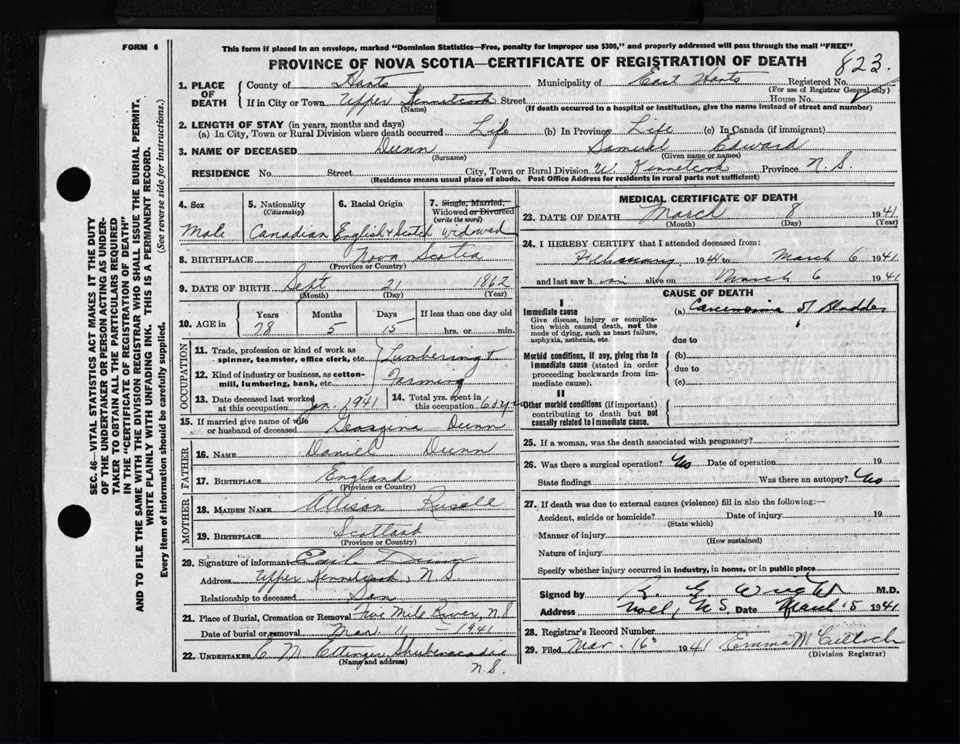 FORM 6
This form if placed in an envelope, marked "Dominion Statistics—Free, penalty for improper use $300," and properly addressed will pass through the mail "FREE"
PROVINCE OF NOVA SCOTIA—CERTIFICATE OF REGISTRATION OF DEATH
823
1. PLACE OF DEATH
County of Hants Municipality of East Hants Registered No.
(For use of Registrar General only)
If in City or Town Upper Kennetcook Street House No.
(Name) (If death occurred in a hospital or institution, give the name instead of street and number)
2. LENGTH OF STAY (in years, months and days)
(a) In City, Town or Rural Division where death occurred Life (b) In Province Life (c) In Canada (if immigrant)
3. NAME OF DECEASED Dunn Samuel Edward
(Surname) (Given name or names)
RESIDENCE No. Street City, Town or Rural Division U. Kennetcook Province N.S.
(Residence means usual place of abode. Post Office Address for residents in rural parts not sufficient)
4. Sex
Male
5. Nationality
(Citizenship)
Canadian
6. Racial Origin
English & Scotch
7. Single, Married,
Widowed or Divorced
(write the word)
Widowed
8. BIRTHPLACE Nova Scotia
(Province or Country)
9. DATE OF BIRTH Sept 21 1862
(Month) (Day) (Year)
10. AGE in
Years Months Days If less than one day old
78 5 15 hrs. or min.
OCCUPATION
11. Trade, profession or kind of work as
spinner, teamster, office clerk, etc. Lumbering &
12. Kind of industry or business, as cotton-
mill, lumbering, bank, etc. Farming
13. Date deceased last worked
at this occupation Jan. 1941
14. Total yrs. spent in
this occupation 60 yrs
15. If married give name of wife
or husband of deceased Georgina Dunn
FATHER
16. NAME Daniel Dunn
17. BIRTHPLACE England
(Province or Country)
MOTHER
18. MAIDEN NAME
19. BIRTHPLACE Scotland
(Province or Country)
20. Signature of informant Earl
Address Upper Kennetcook, N.S
Relationship to deceased Son
21. Place of Burial, Cremation or Removal Five Mile River, N.S
Date of burial or removal Mar. 11 - 1941
22. UNDERTAKER C. M. Ettinger Shubenacadie
(Name and address) N.S.
MEDICAL CERTIFICATE OF DEATH
23. DATE OF DEATH March 8 1941
(Month) (Day) (Year)
24. I HEREBY CERTIFY that I attended deceased from:
February 1941 to March 6 1941
and last saw h im alive on March 6 1941
CAUSE OF DEATH
I
Immediate cause
Give disease, injury or complication which caused death, not the mode of dying, such as heart failure, asphyxia, asthenia, etc.
(a) Carcinoma of Bladder
due to
Morbid conditions, if any, giving rise to immediate cause (stated in order proceeding backwards from immediate cause).
(b)
due to
(c)
II
Other morbid conditions (if important) contributing to death but not causally related to immediate cause.
25. If a woman, was the death associated with pregnancy?
26. Was there a surgical operation? No Date of operation 19
State findings Was there an autopsy? No
27. If death was due to external causes (violence) fill in also the following:—
Accident, suicide or homicide? Date of injury 19
(State which)
Manner of injury
(How sustained)
Nature of injury
Specify whether injury occurred in industry, in home, or in public place
Signed by Wright M.D.
Address Noel, N.S. Date March 15 1941
28. Registrar's Record Number
29. Filed Mar. 16 1941 Emma
(Division Registrar)
SEC. 46—VITAL STATISTICS ACT MAKES IT THE DUTY
OF THE UNDERTAKER OR PERSON ACTING AS UNDER-
TAKER TO OBTAIN ALL THE PARTICULARS REQUIRED
IN THE "CERTIFICATE OF REGISTRATION OF DEATH"
AND TO FILE THE SAME WITH THE DIVISION REGISTRAR WHO SHALL ISSUE THE BURIAL PERMIT.
WRITE PLAINLY WITH UNFADING INK. THIS IS A PERMANENT RECORD.
Every item of information should be carefully supplied. (See reverse side for instructions.)